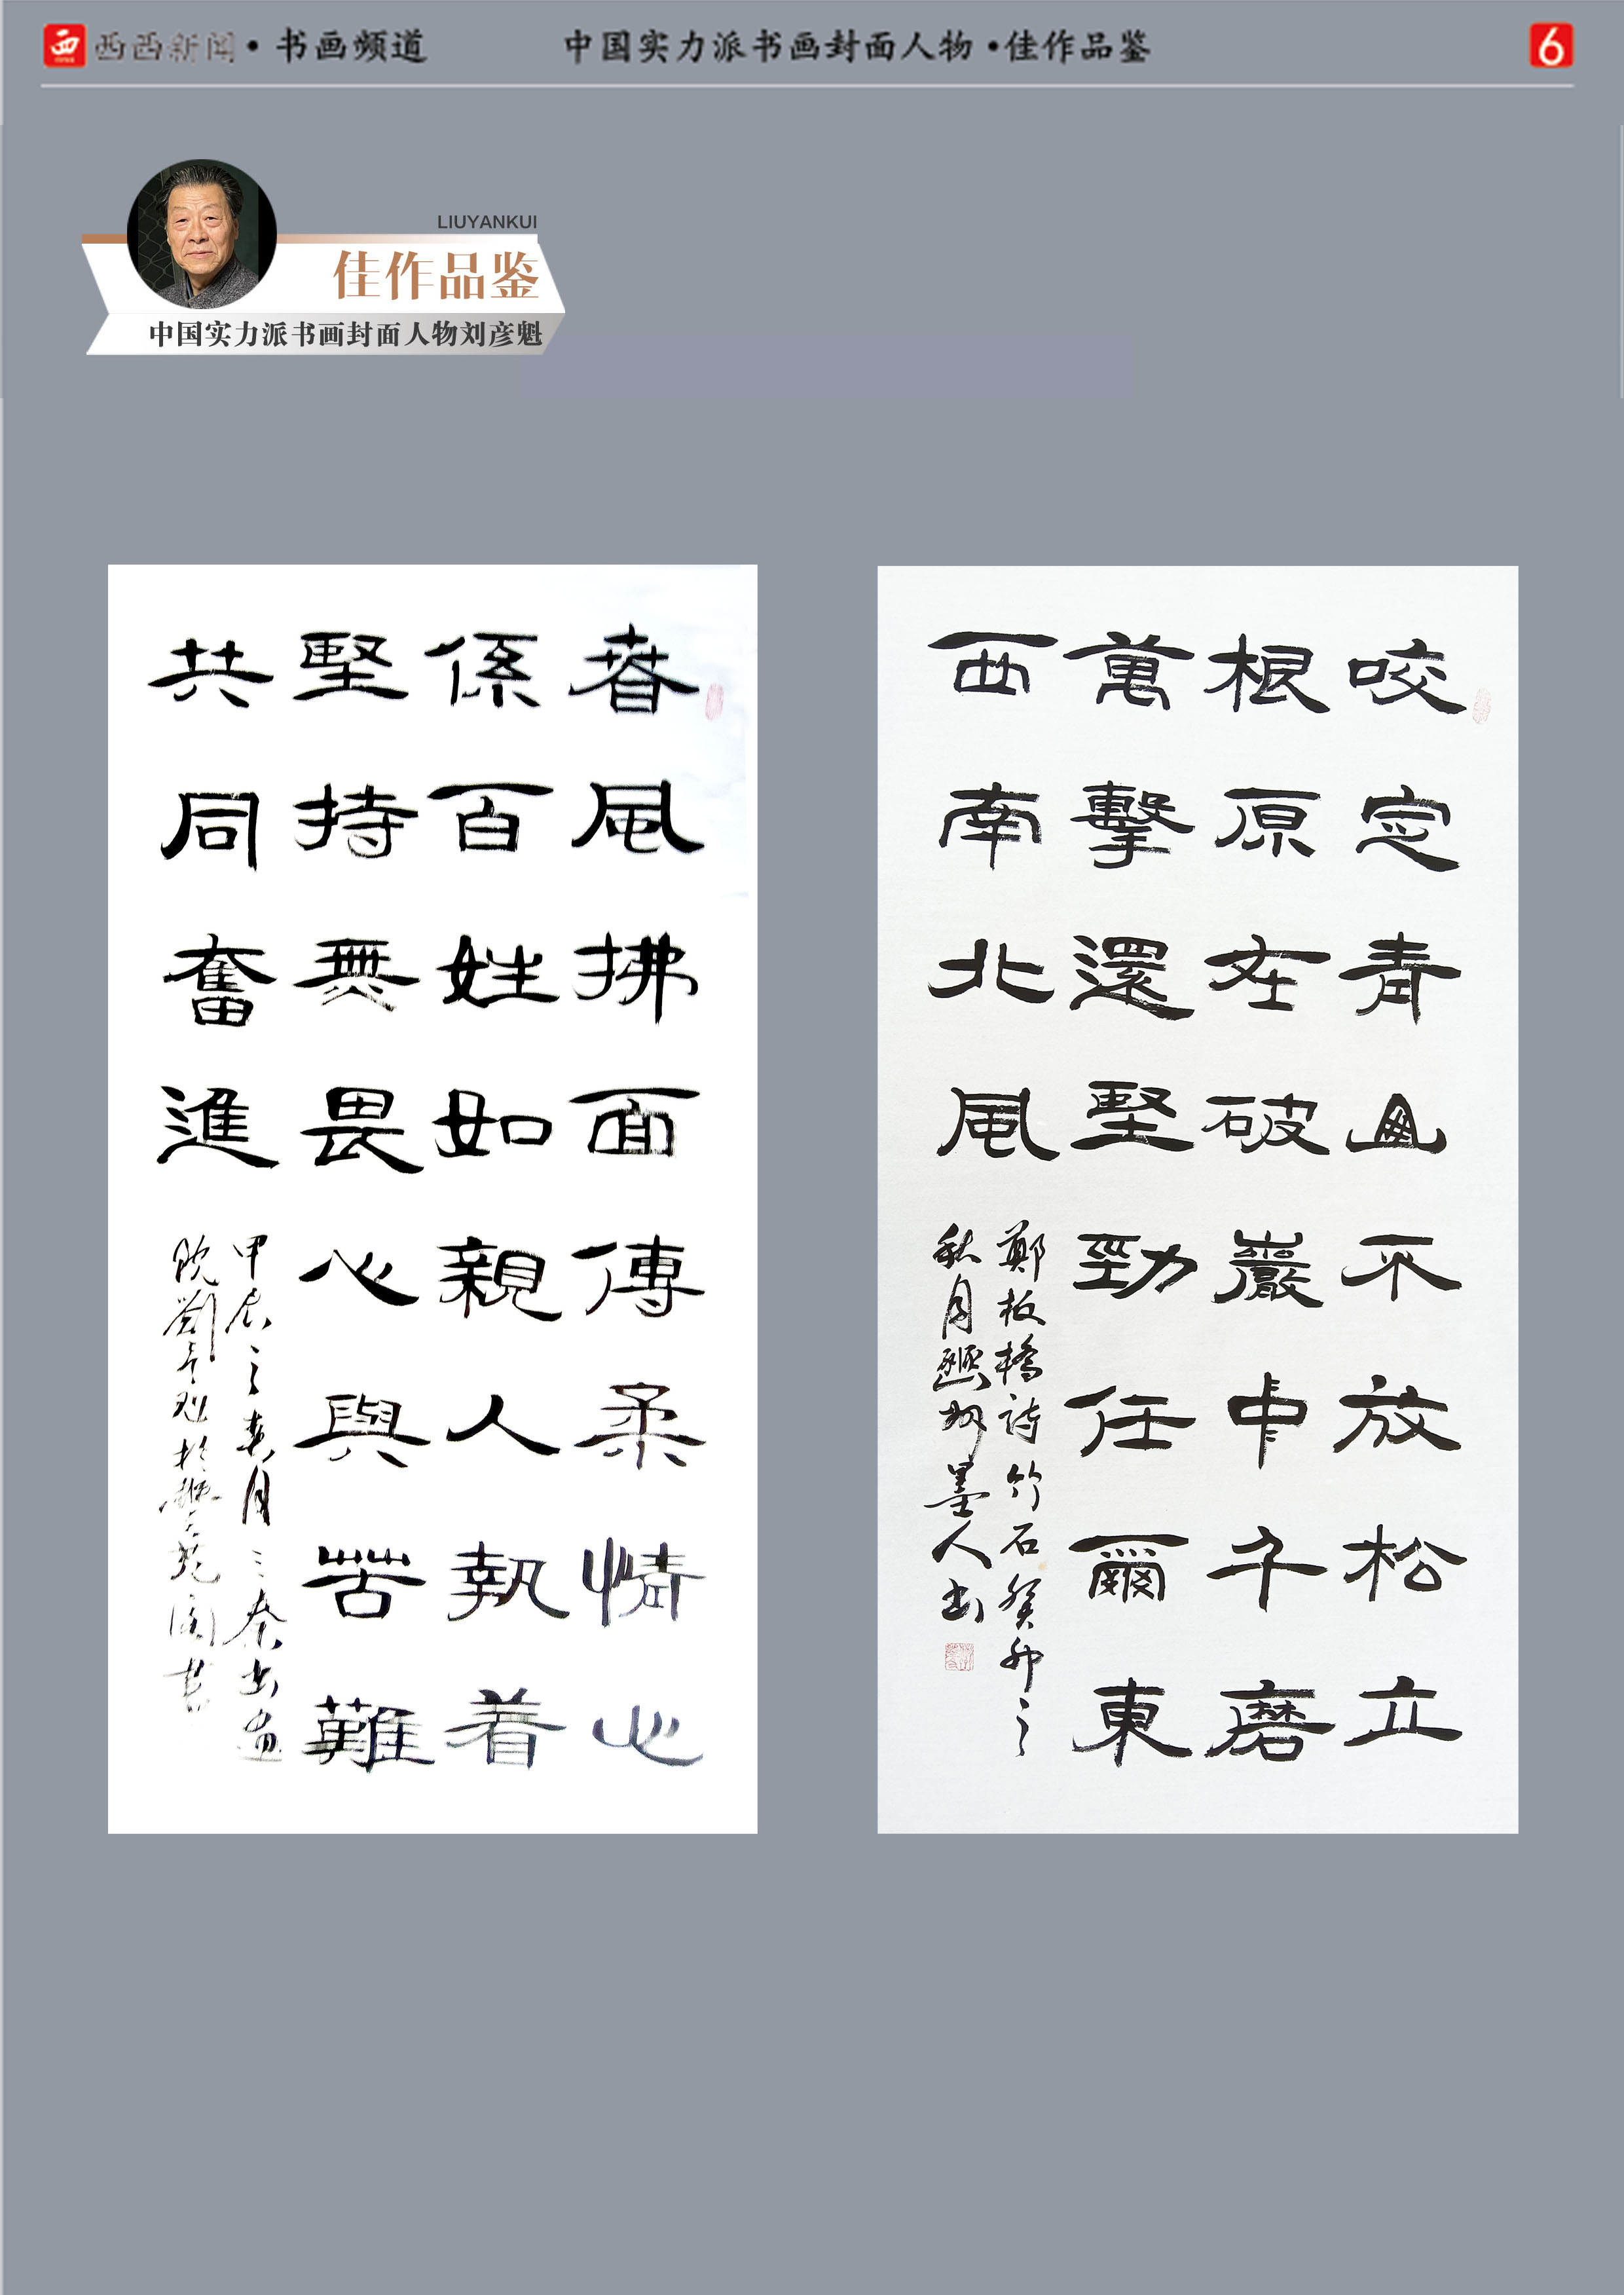 西西新闻·书画频道
中国实力派书画封面人物·佳作品鉴
6
LIUYANKUI
佳作品鉴
中国实力派书画封面人物刘彦魁
春風拂面傳柔情心
係百姓如親人執着
堅持無畏心與苦難
共同奮進
甲辰之春月三秦書畫
院劉彦魁於
書
咬定青山不放松立
根原在破巖中千磨
萬擊還堅勁任爾東
西南北風
鄭板橋詩竹石癸卯之
秋月魏州墨人書